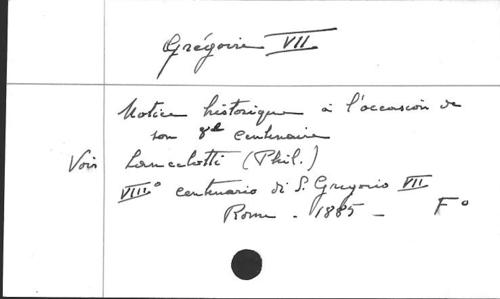 Grégoire VII
Notice historique à l'occasion de
son 8e centenaire
Voir Lancelotti (Phil.)
VIIIº centenario di S. Gregorio VII
Rome - 1885 - Fº